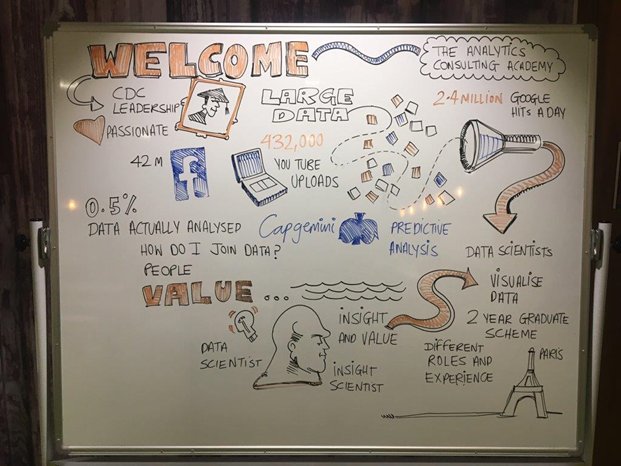 WELCOME
THE ANALYTICS
CONSULTING ACADEMY
CDC
LEADERSHIP
PASSIONATE
LARGE
DATA
2.4 MILLION GOOGLE
HITS A DAY
432,000
YOU TUBE
UPLOADS
42 M
f
0.5%
DATA ACTUALLY ANALYSED
Capgemini
PREDICTIVE
ANALYSIS
DATA SCIENTISTS
HOW DO I JOIN DATA?
PEOPLE
VALUE...
VISUALISE
DATA
INSIGHT
AND VALUE
2 YEAR GRADUATE
SCHEME
DATA
SCIENTIST
INSIGHT
SCIENTIST
DIFFERENT
ROLES AND
EXPERIENCE
PARIS